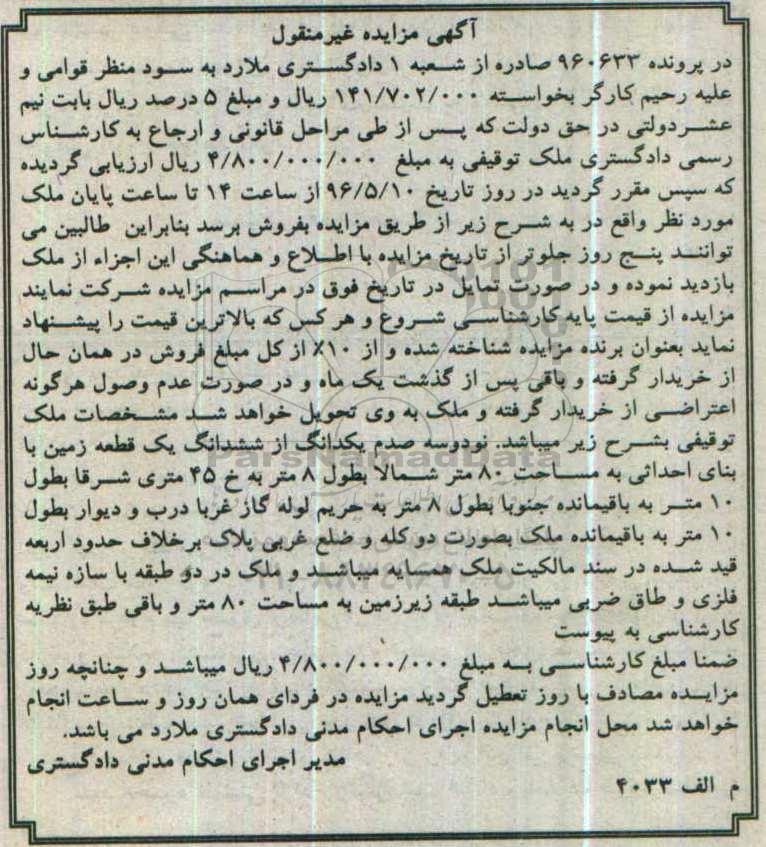 آگهی مزایده غیرمنقول
در پرونده ۹۶۰۶۳۳ صادره از شعبه ۱ دادگستری ملارد به سود منظر قوامی و
علیه رحیم کارگر بخواسته ۱۴۱/۷۰۲/۰۰۰ ریال و مبلغ ۵ درصد ریال بابت نیم
عشردولتی در حق دولت که پس از طی مراحل قانونی و ارجاع به کارشناس
رسمی دادگستری ملک توقیفی به مبلغ ۴/۸۰۰/۰۰۰/۰۰۰ ریال ارزیابی گردیده
که سپس مقرر گردید در روز تاریخ ۹۶/۵/۱۰ از ساعت ۱۴ تا ساعت پایان ملک
مورد نظر واقع در به شرح زیر از طریق مزایده بفروش برسد بنابراین طالبین می
توانند پنج روز جلوتر از تاریخ مزایده با اطلاع و هماهنگی این اجراء از ملک
بازدید نموده و در صورت تمایل در تاریخ فوق در مراسم مزایده شرکت نمایند
مزایده از قیمت پایه کارشناسی شروع و هر کس که بالاترین قیمت را پیشنهاد
نماید بعنوان برنده مزایده شناخته شده و از ۱۰٪ از کل مبلغ فروش در همان حال
از خریدار گرفته و باقی پس از گذشت یک ماه و در صورت عدم وصول هرگونه
اعتراضی از خریدار گرفته و ملک به وی تحویل خواهد شد مشخصات ملک
توقیفی بشرح زیر میباشد. نودوسه صدم یکدانگ از ششدانگ یک قطعه زمین با
بنای احداثی به مساحت ۸۰ متر شمالا بطول ۸ متر به خ ۴۵ متری شرقا بطول
۱۰ متر به باقیمانده جنوبا بطول ۸ متر به حریم لوله گاز غربا درب و دیوار بطول
۱۰ متر به باقیمانده ملک بصورت دو کله و ضلع غربی پلاک برخلاف حدود اربعه
قید شده در سند مالکیت ملک همسایه میباشد و ملک در دو طبقه با سازه نیمه
فلزی و طاق ضربی میباشد طبقه زیرزمین به مساحت ۸۰ متر و باقی طبق نظریه
کارشناسی به پیوست
ضمنا مبلغ کارشناسی به مبلغ ۴/۸۰۰/۰۰۰/۰۰۰ ریال میباشد و چنانچه روز
مزایده مصادف با روز تعطیل گردید مزایده در فردای همان روز و ساعت انجام
خواهد شد محل انجام مزایده اجرای احکام مدنی دادگستری ملارد می باشد.
مدیر اجرای احکام مدنی دادگستری
م الف ۴۰۳۳
ParsNamadData